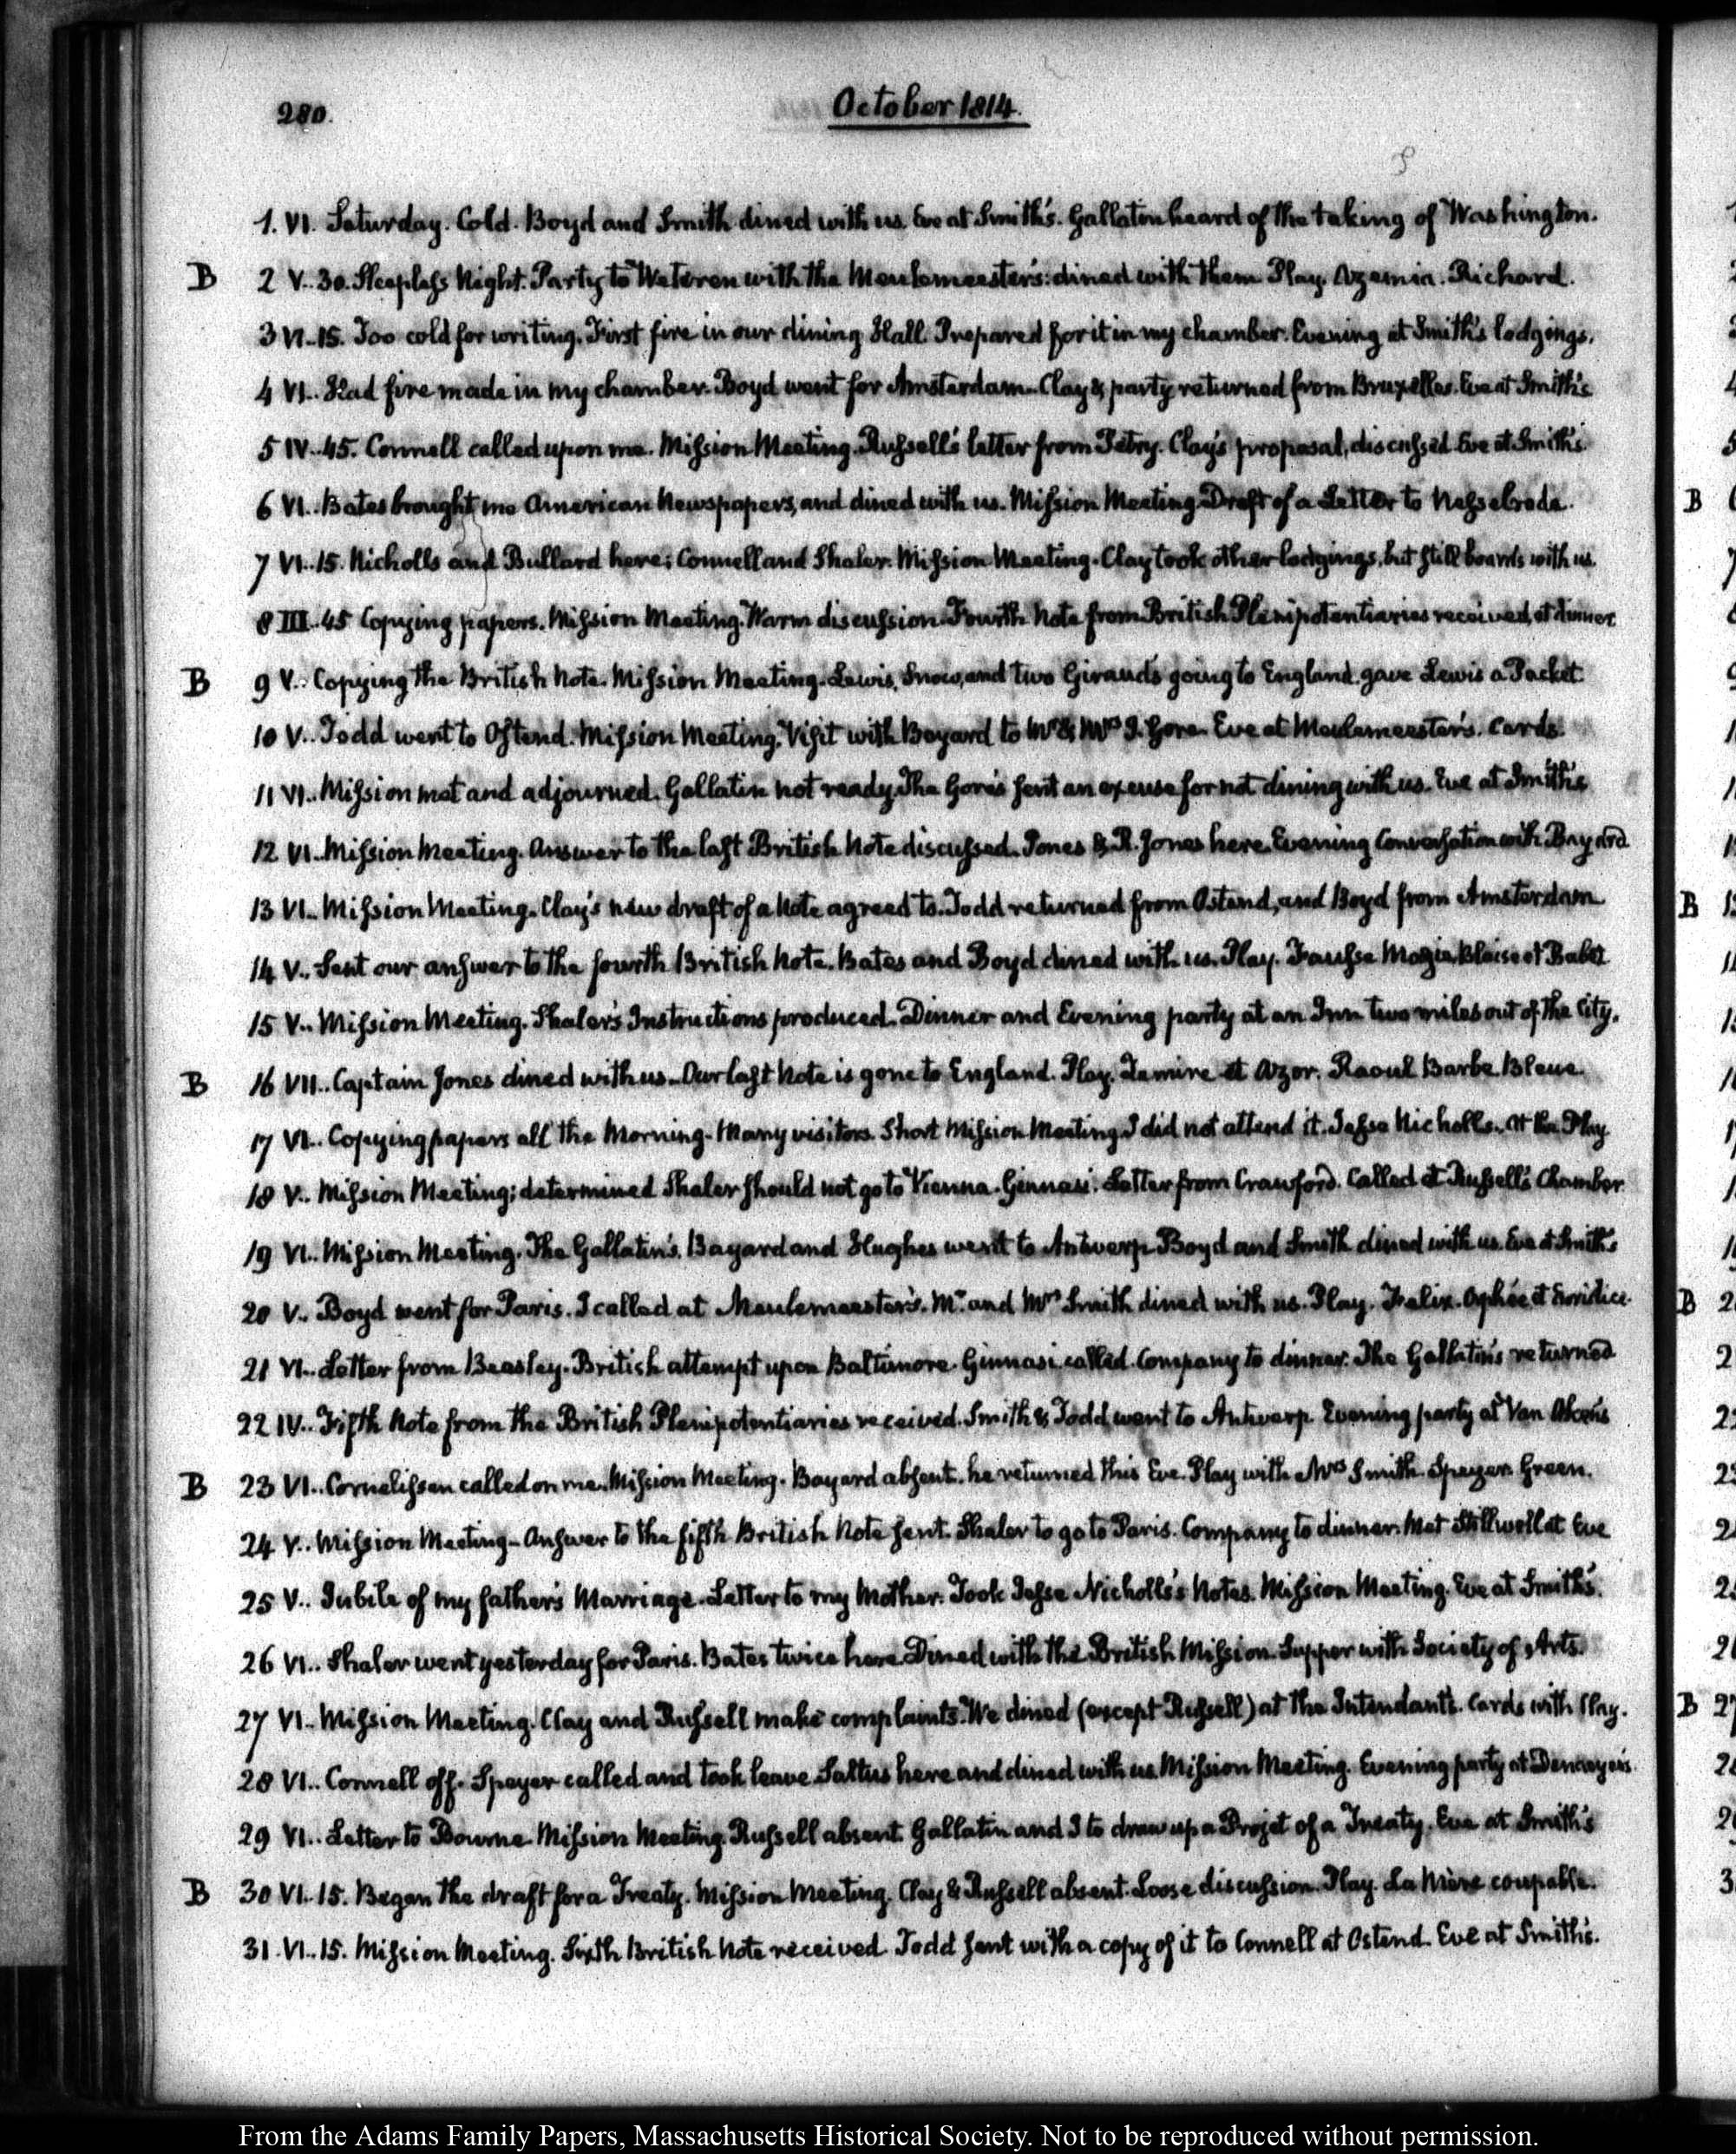 280.
October 1814.
1. VI. Saturday. Cold. Boyd and Smith dined with us. Eve at Smith's. Gallatin heard of the taking of Washington.
B 2 V..30. Sleepless Night. Party to Weteren with the Meulemeester's: dined with them. Play. Azemia. Richard.
3 VI..15. Too cold for writing. First fire in our dining Hall. Prepared for it in my chamber. Evening at Smith's lodgings.
4 VI.. Had fire made in my chamber. Boyd went for Amsterdam. Clay & party returned from Bruxelles. Eve at Smith's
5 IV..45. Connell called upon me. Mission Meeting. Russell's letter from Petry. Clay's proposal, discussed. Eve at Smith's.
6 VI.. Bates brought me American Newspapers, and dined with us. Mission Meeting. Draft of a Letter to Nesselrode.
7 VI..15. Nicholls and Bullard here; Connell and Shaler. Mission Meeting. Clay took other lodgings, but still boards with us.
8 III..45 Copying papers. Mission Meeting. Warm discussion. Fourth Note from British Plenipotentiaries received, at dinner
B 9 V.. Copying the British Note. Mission Meeting. Lewis, Snow, and two Girauds going to England. gave Lewis a Packet.
10 V.. Todd went to Ostend. Mission Meeting. Visit with Bayard to Mr. & Mrs. J. Gore. Eve at Meulemeester's. Cards.
11 VI.. Mission met and adjourned. Gallatin not ready. The Gore's sent an excuse for not dining with us. Eve at Smith's
12 VI.. Mission Meeting. Answer to the last British Note discussed. Jones & R. Jones here. Evening Conversation with Bayard
13 VI.. Mission Meeting. Clay's new draft of a Note agreed to. Todd returned from Ostend, and Boyd from Amsterdam.
14 V.. Sent our answer to the fourth British Note. Bates and Boyd dined with us. Play. Fausse Magie. Blaise et Babet
15 V.. Mission Meeting. Shaler's Instructions produced. Dinner and Evening party at an Inn two miles out of the City.
B 16 VII.. Captain Jones dined with us. Our last Note is gone to England. Play. Zemire et Azor. Raoul Barbe Bleue.
17 VI.. Copying papers all the Morning. Many visitors. Short Mission Meeting. I did not attend it. Jesse Nicholls. At the Play
18 V.. Mission Meeting; determined Shaler should not go to Vienna. Ginnasi. Letter from Crawford. Called at Russell's Chamber
19 VI.. Mission Meeting. The Gallatin's, Bayard and Hughes went to Antwerp. Boyd and Smith dined with us. Eve at Smith's
20 V.. Boyd went for Paris. I called at Meulemeester's. Mr. and Mrs. Smith dined with us. Play. Felix. Orphée et Euridice.
21 VI.. Letter from Beasley. British attempt upon Baltimore. Ginnasi called. Company to dinner. The Gallatin's returned
22 IV.. Fifth Note from the British Plenipotentiaries received. Smith & Todd went to Antwerp. Evening party at Van
B 23 VI.. Cornelissen called on me. Mission Meeting. Bayard absent. he returned this Eve. Play with Mrs. Smith. Speyer. Green.
24 V.. Mission Meeting. Answer to the fifth British Note sent. Shaler to go to Paris. Company to dinner. Met Stillwell at Eve
25 V.. Jubile of my father's Marriage. Letter to my Mother. Took Jesse Nicholls's Notes. Mission Meeting. Eve at Smith's.
26 VI.. Shaler went yesterday for Paris. Bates twice here. Dined with the British Mission. Supper with Society of Arts.
27 VI.. Mission Meeting. Clay and Russell make complaints. We dined (except Russell) at the Intendant's. Cards with Clay.
28 VI.. Connell off. Speyer called and took leave. Saltus here and dined with us. Mission Meeting. Evening party at
29 VI.. Letter to Bourne. Mission Meeting. Russell absent. Gallatin and I to draw up a Projet of a Treaty. Eve at Smith's
B 30 VI..15. Began the draft for a Treaty. Mission Meeting. Clay & Russell absent. Loose discussion. Play. La Mère coupable.
31. VI..15. Mission Meeting. Sixth British Note received. Todd sent with a copy of it to Connell at Ostend. Eve at Smith's.
From the Adams Family Papers, Massachusetts Historical Society. Not to be reproduced without permission.